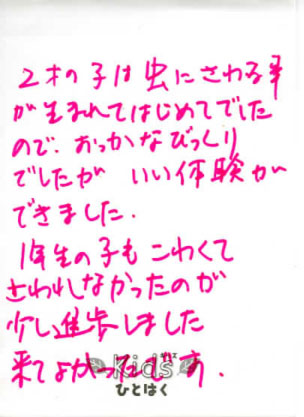 2才の子は虫にさわる事
が生まれてはじめてでした
ので、おっかなびっくり
でしたが いい体験が
できました.
1年生の子もこわくて
さわれしなかったのが
少し進歩しました
来てよかったです.
Kids キッズ
ひとはく